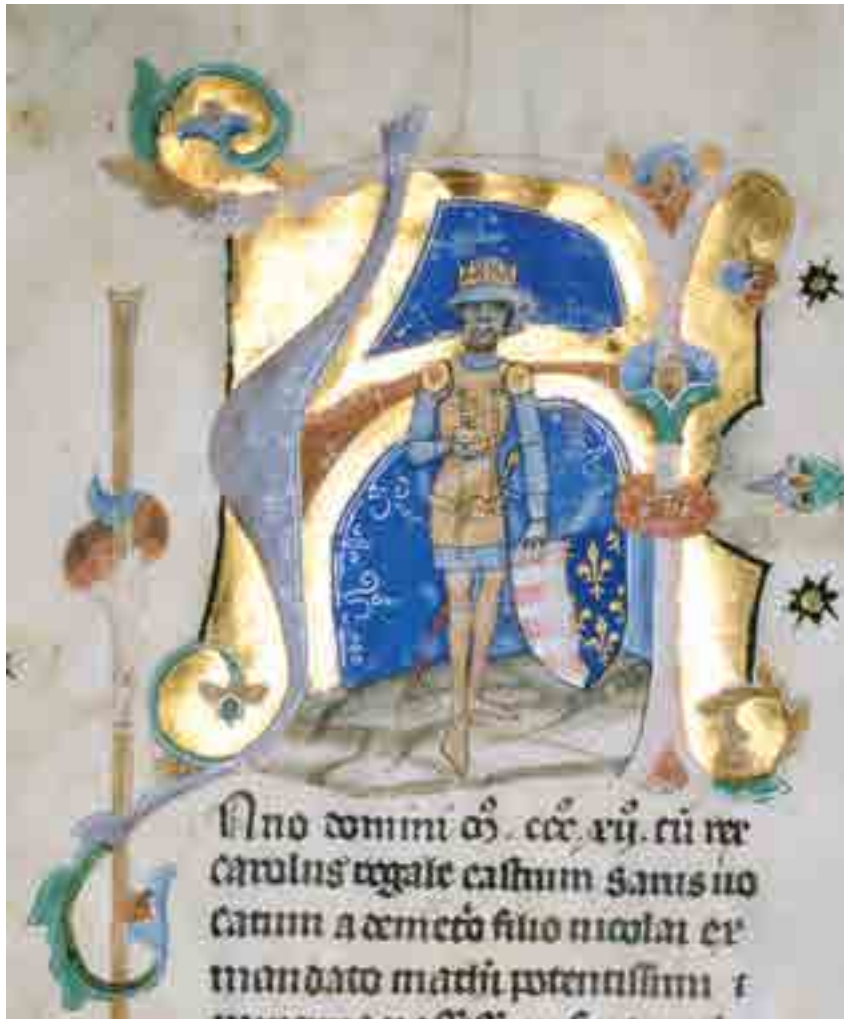 Ano domini m̊. ccc̊. xıȷ̊. cū rex
carolus regale castrum Sarus uo
catum a demet̊o filio nicolai ex
mandato mathi potentissimi ⁊